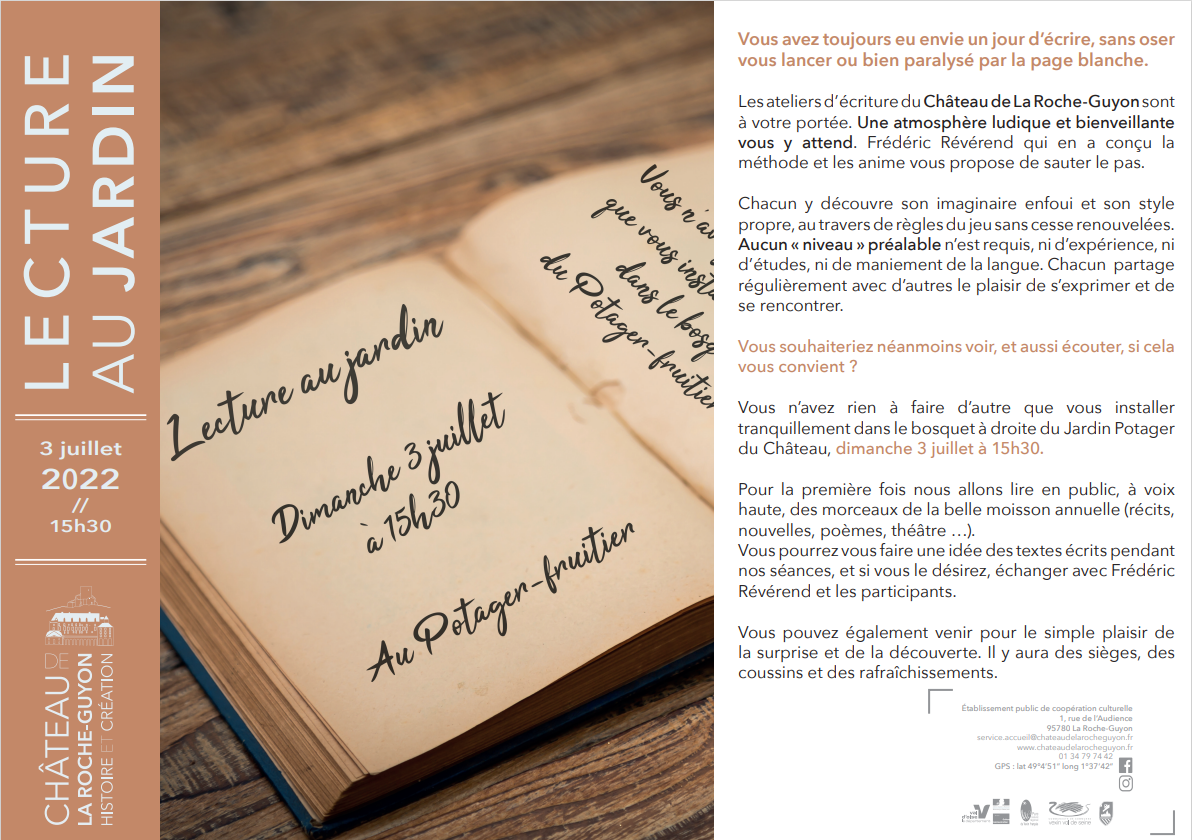 LECTURE
AU JARDIN
3 juillet
2022
//
15h30
CHÂTEAU DE
LA ROCHE-GUYON
HISTOIRE ET CRÉATION
Lecture au jardin
Dimanche 3 juillet
à 15h30
Au Potager-fruitier
Vous n'av
que vous insta
dans le bosq
du Potager-fruitier
Vous avez toujours eu envie un jour d'écrire, sans oser
vous lancer ou bien paralysé par la page blanche.
Les ateliers d'écriture du Château de La Roche-Guyon sont
à votre portée. Une atmosphère ludique et bienveillante
vous y attend. Frédéric Révérend qui en a conçu la
méthode et les anime vous propose de sauter le pas.
Chacun y découvre son imaginaire enfoui et son style
propre, au travers de règles du jeu sans cesse renouvelées.
Aucun « niveau » préalable n'est requis, ni d'expérience, ni
d'études, ni de maniement de la langue. Chacun partage
régulièrement avec d'autres le plaisir de s'exprimer et de
se rencontrer.
Vous souhaiteriez néanmoins voir, et aussi écouter, si cela
vous convient ?
Vous n'avez rien à faire d'autre que vous installer
tranquillement dans le bosquet à droite du Jardin Potager
du Château, dimanche 3 juillet à 15h30.
Pour la première fois nous allons lire en public, à voix
haute, des morceaux de la belle moisson annuelle (récits,
nouvelles, poèmes, théâtre …).
Vous pourrez vous faire une idée des textes écrits pendant
nos séances, et si vous le désirez, échanger avec Frédéric
Révérend et les participants.
Vous pouvez également venir pour le simple plaisir de
la surprise et de la découverte. Il y aura des sièges, des
coussins et des rafraîchissements.
Établissement public de coopération culturelle
1, rue de l'Audience
95780 La Roche-Guyon
service.accueil@chateaudelarocheguyon.fr
www.chateaudelarocheguyon.fr
01 34 79 74 42
GPS : lat 49°4'51" long 1°37'42"
val
d'oise
vexin val de seine